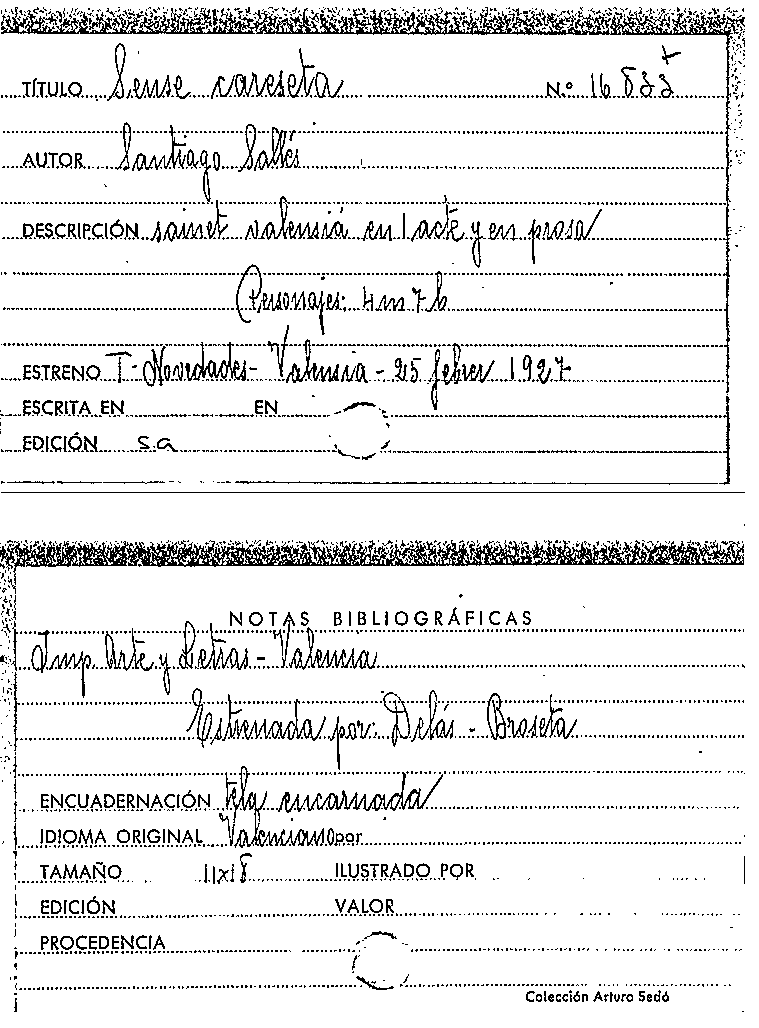 TÍTULO Sense careseta N.º 16 833 +
AUTOR Santiago Sallés
DESCRIPCIÓN sainet valensiá en 1 acte y en prosa
Personajes: 4 m 7 h
ESTRENO T- Novedades- Valensia - 25 febrer 1927
ESCRITA EN EN
EDICIÓN s.a
NOTAS BIBLIOGRÁFICAS
Imp. Arte y Letras - Valencia
Estrenada por: Delás - Broseta
ENCUADERNACIÓN tela encarnada
IDIOMA ORIGINAL Valenciano por
TAMAÑO 11x18 ILUSTRADO POR
EDICIÓN VALOR
PROCEDENCIA
Colección Arturo Sedó